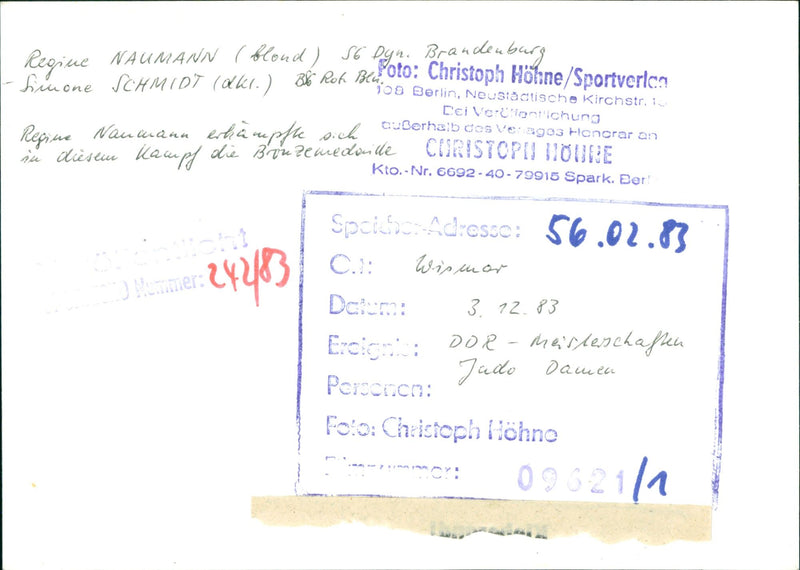 Regine NAUMANN (blond) SG Dyn. Brandenburg
Simone SCHMIDT (dkl.) BSG Rot. Bln.
Regine Naumann erkämpfte sich
in diesem Kampf die Bronzemedaille
Foto: Christoph Höhne/Sportverlag
108 Berlin, Neustädtische Kirchstr. 15
Bei Veröffentlichung
außerhalb des Verlages Honorar an
CHRISTOPH HÖHNE
Kto.-Nr. 6692-40-79915 Spark. Berl
Nummer: 242/83
Speicher-Adresse: 56.02.83
O.: Wismar
Datum: 3.12.83
Ereignis: DDR-Meisterschaften
Judo Damen
Personen:
Foto: Christoph Höhne
Filmnummer: 09621/1